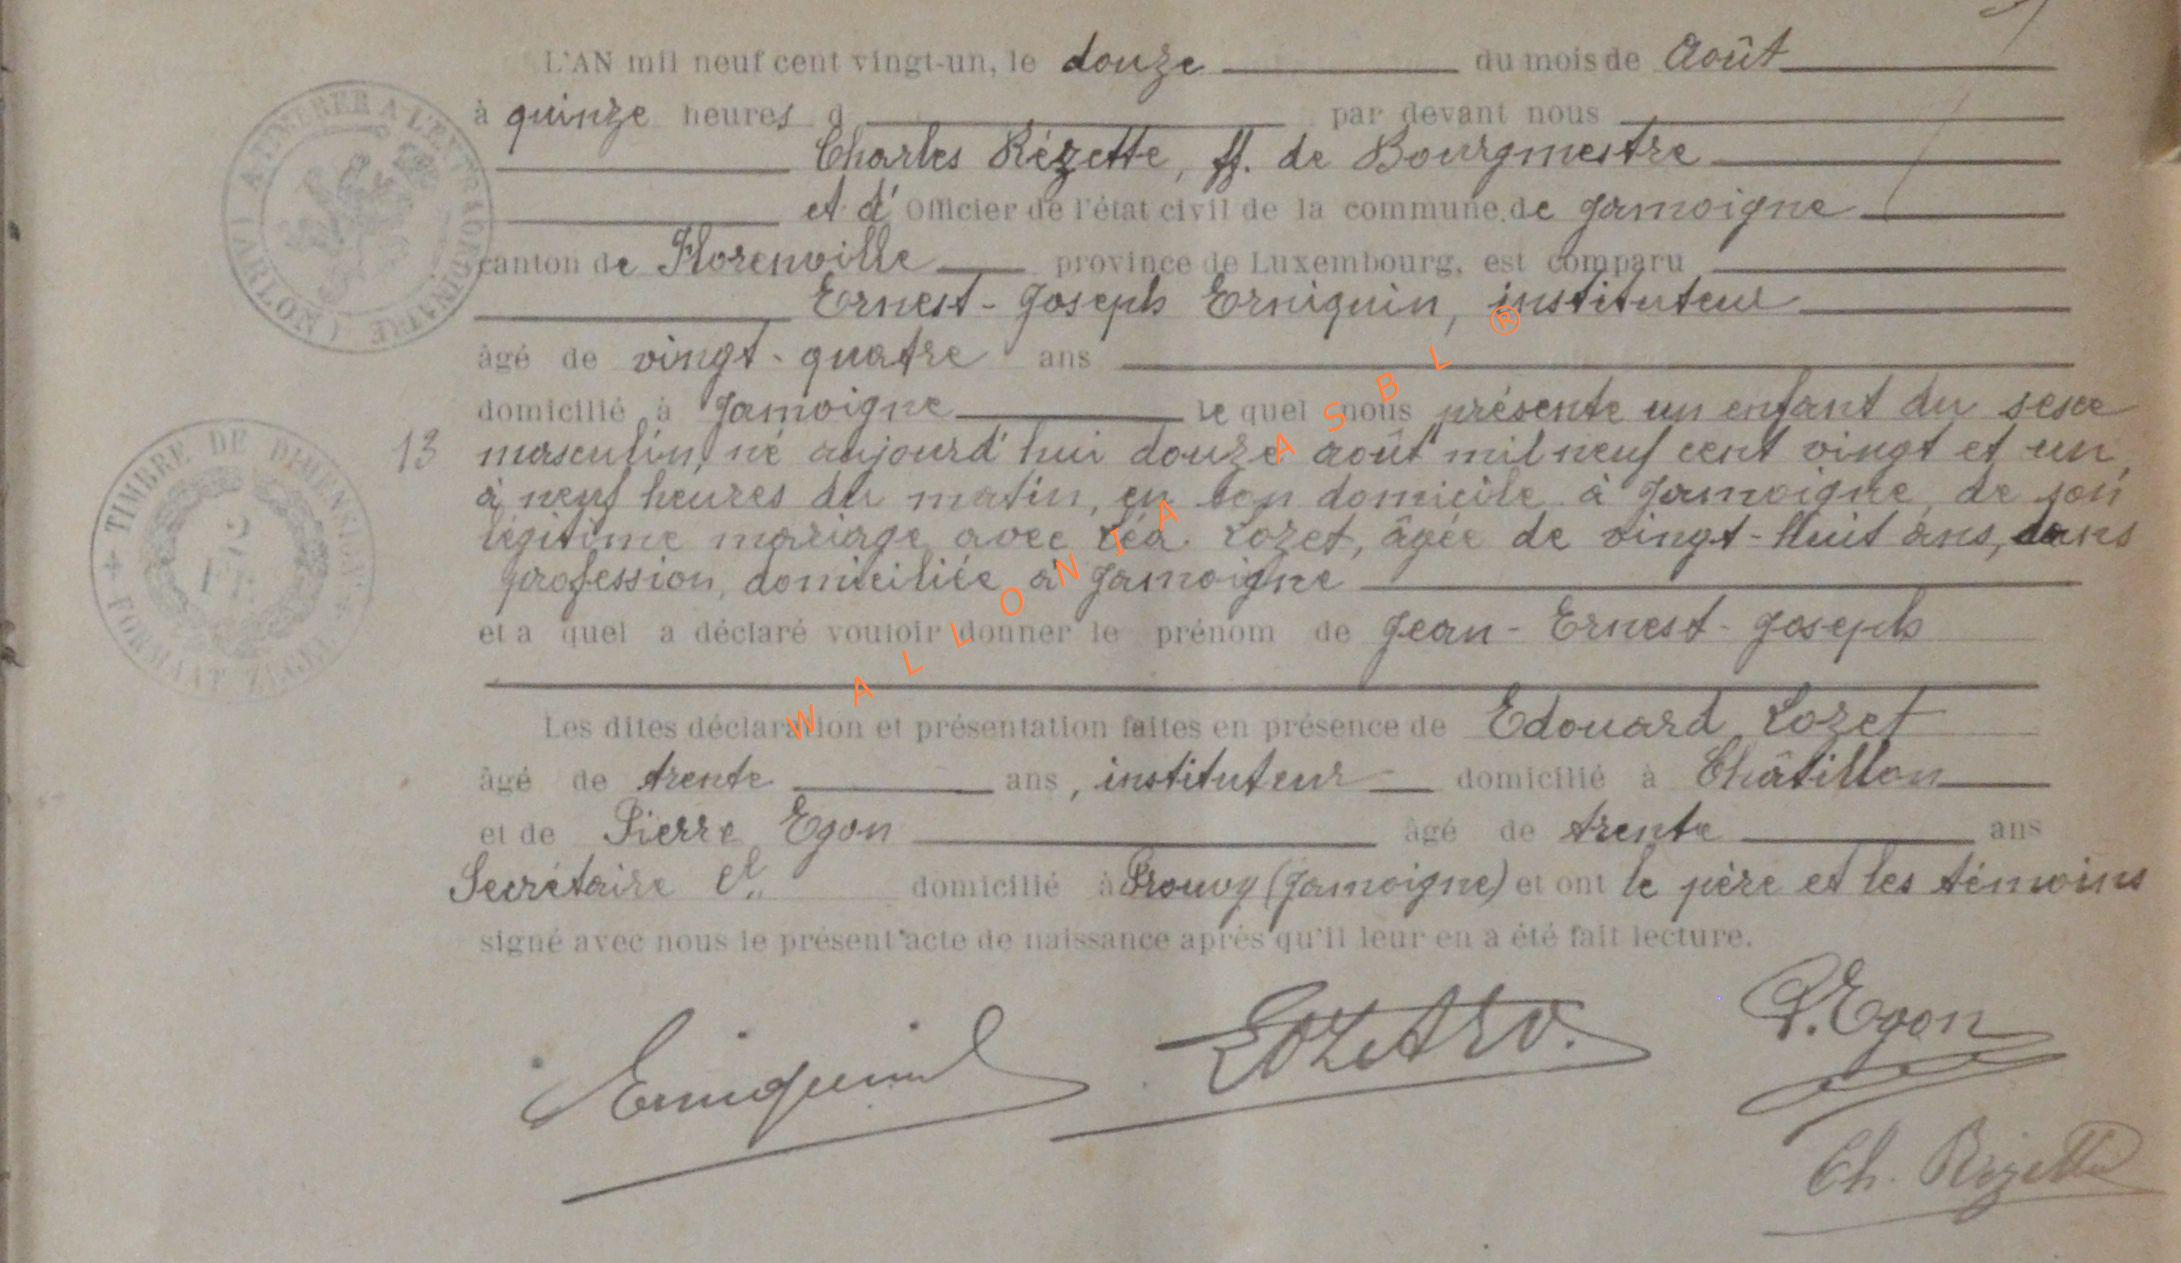 L'AN mil neuf cent vingt-un, le douze du mois de Août
à quinze heures d par devant nous
Charles Rézette, ff. de Bourgmestre
et d' Officier de l'état civil de la commune de Jamoigne
canton de Florenville province de Luxembourg, est comparu
Ernest-Joseph Erniquin, instituteur
âgé de vingt-quatre ans
domicilié à Jamoigne lequel nous présente un enfant du sexe
13 masculin, né aujourd'hui douze août mil neuf cent vingt et un,
à neuf heures du matin, en son domicile à Jamoigne, de son
légitime mariage avec Léa Lozet, âgée de vingt-huit ans, sans
profession, domiciliée à Jamoigne
et a quel a déclaré vouloir donner le prénom de Jean-Ernest-Joseph
Les dites déclaration et présentation faites en présence de Edouard Lozet
âgé de trente ans, instituteur domicilié à Châtillon
et de Pierre Egon âgé de trente ans
Secrétaire cl. domicilié à Prouvy (Jamoigne) et ont le père et les témoins
signé avec nous le présent acte de naissance après qu'il leur en a été fait lecture.
Erniquin
P. Egon
Ch. Rézette
(ARLON) A TIMBRER A L'EXTRAORDINAIRE
+ TIMBRE DE DIMENSION + FORMAAT ZEGEL
2
FR.
WALLONIA ASBL ®